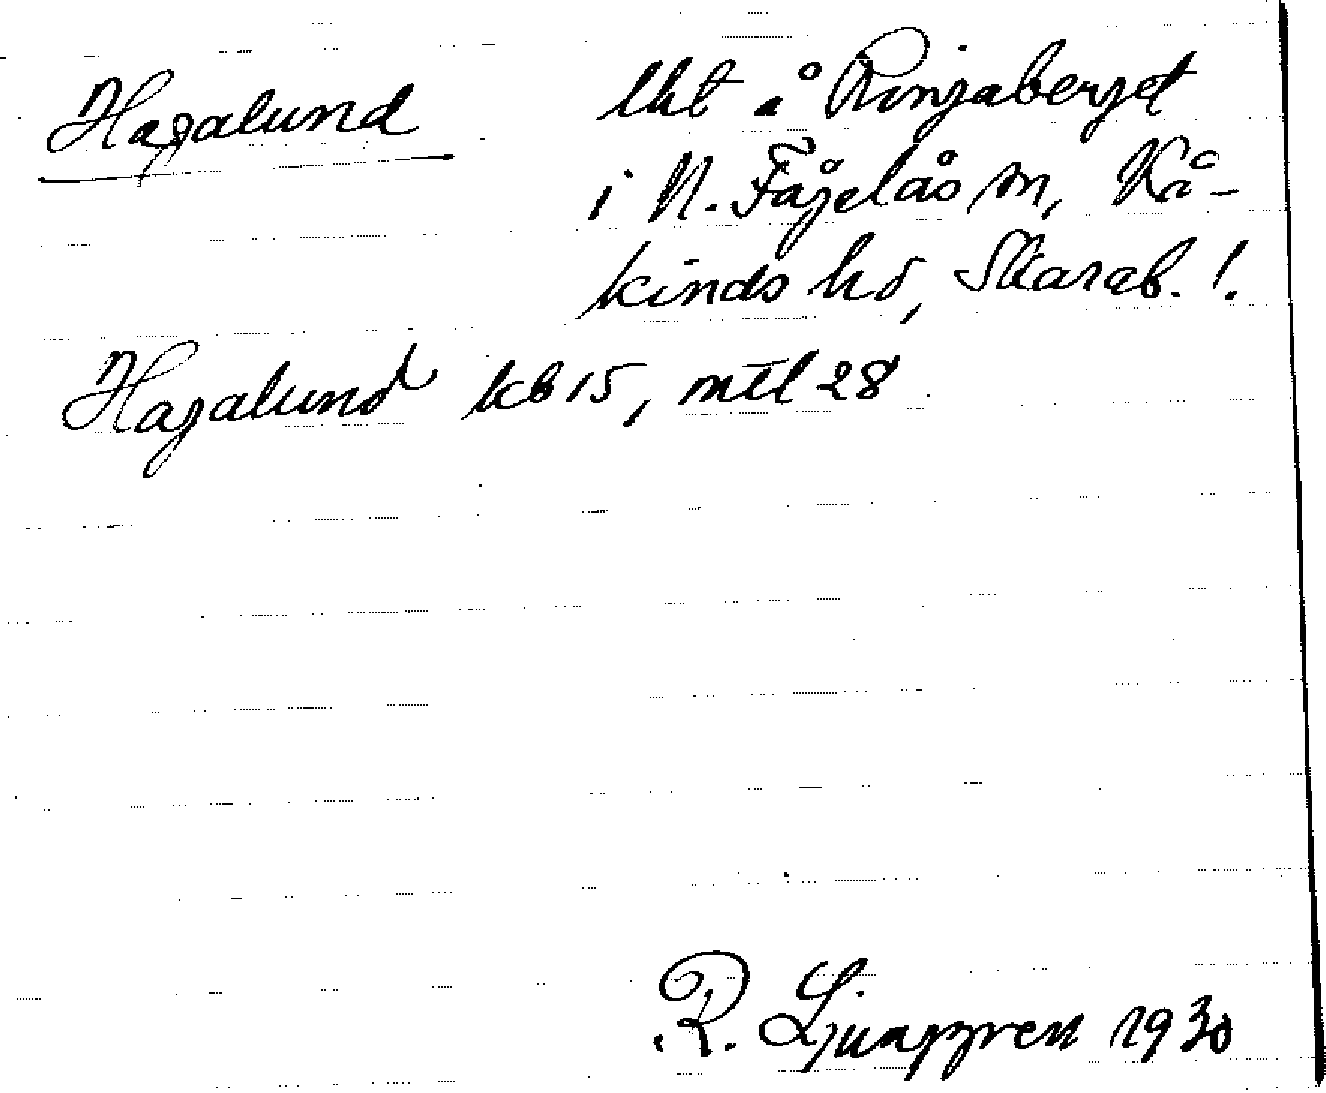 Hagalund lht å Ringaberget
i N. Fågelås sn, Kå-
kinds hd, Skarab. !.
Hagalund kb 15, mtl 28
R. Ljunggren 1930